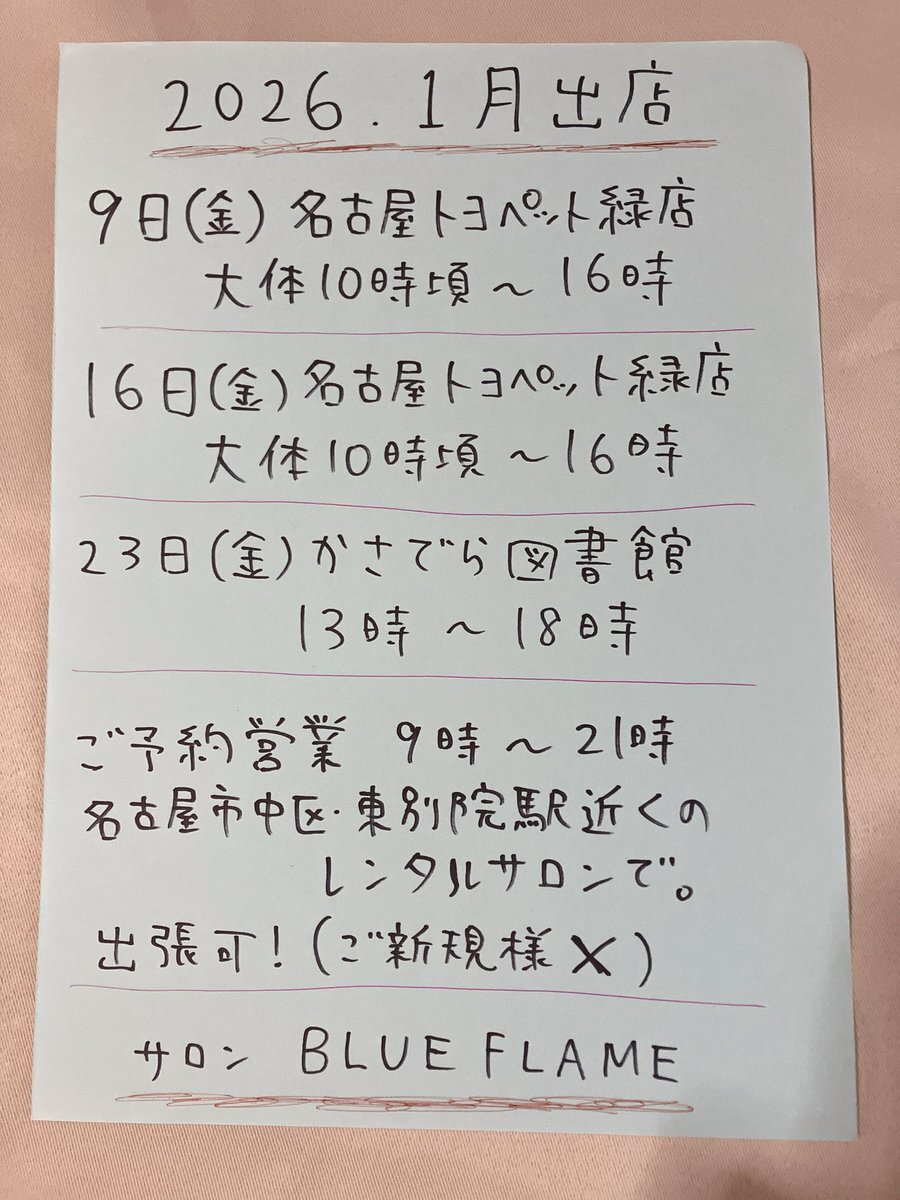 2026.1月出店
9日(金)名古屋トヨペット緑店
大体10時頃~16時
16日(金)名古屋トヨペット緑店
大体10時頃~16時
23日(金)かさでら図書館
13時~18時
ご予約営業 9時~21時
名古屋市中区・東別院駅近くの
レンタルサロンで。
出張可!(ご新規様×)
サロン BLUE FLAME